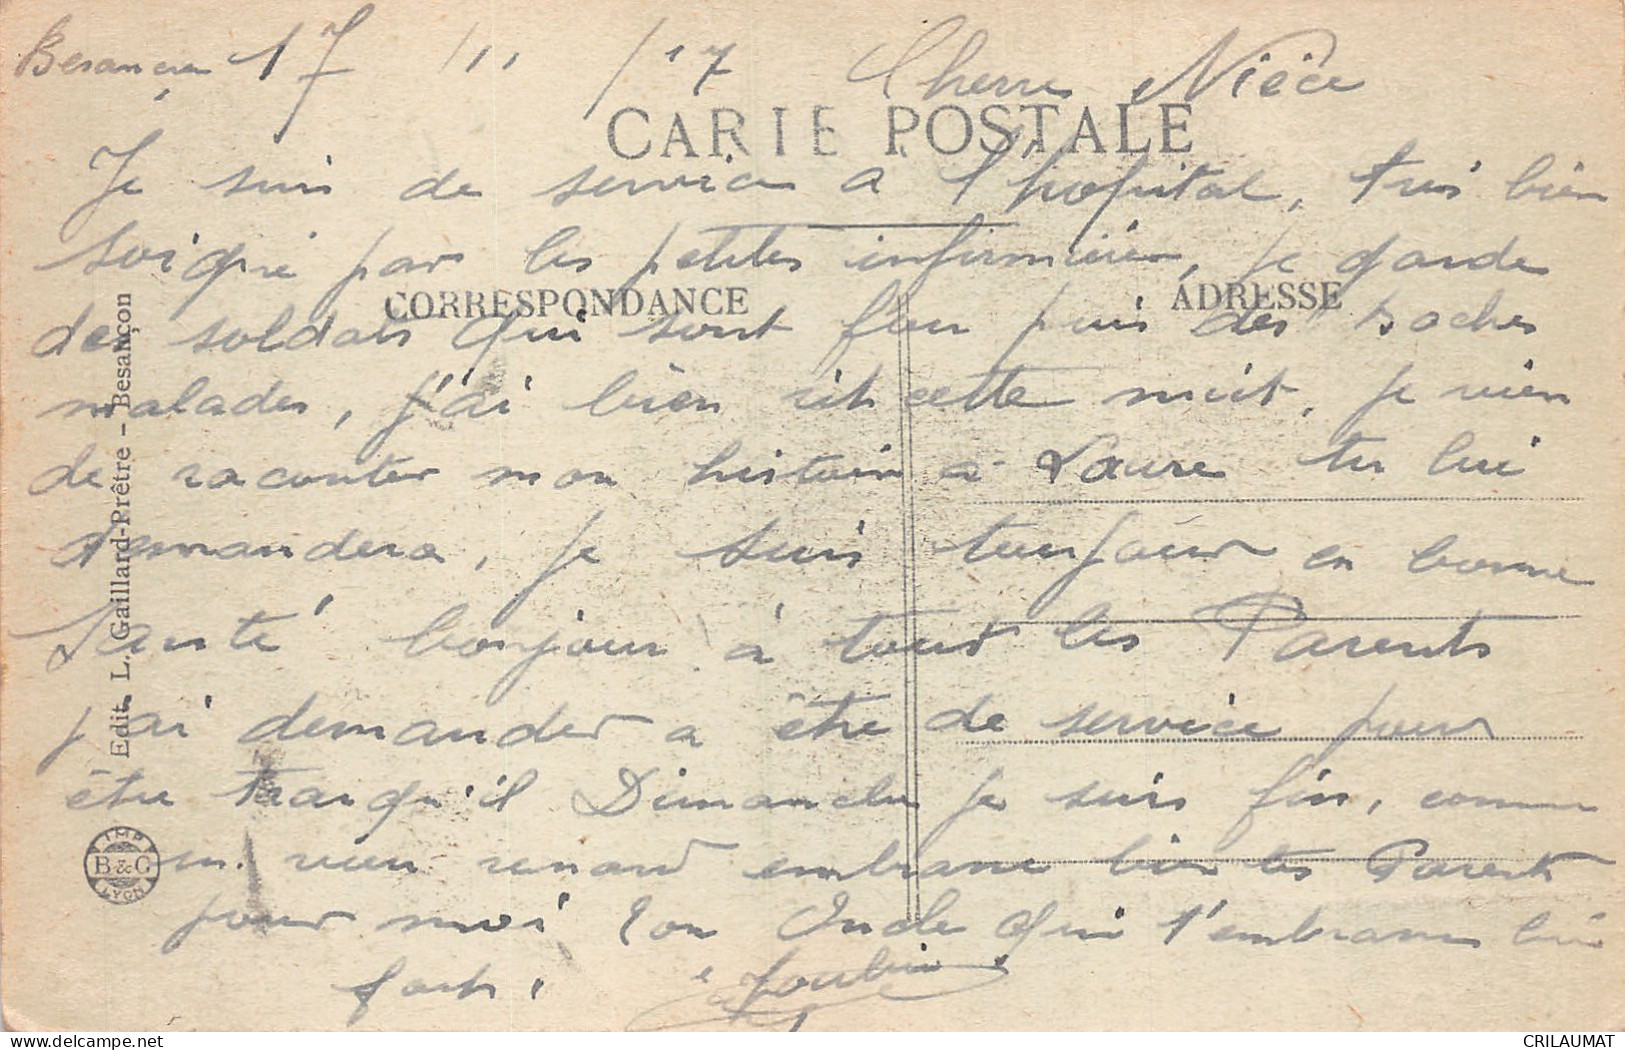 Besançon 17 / 11 / 17 Cherre Nièce
CARTE POSTALE
Je suis de service a l'hopital, tres bien
soigné par les petites infirmière, je garde
CORRESPONDANCE
ADRESSE
des soldats qui sont fou puis des boches
malades, j'ai bien rit cette nuit, je vien
de raconter mon histoire a Laure tu lui
demandera, je suis toujour en bonne
Santé bonjour à tout les Parents
j'ai demander a être de service pour
être tranqu'il Dimanche je suis fin, comme
un vieu renard embrasse bien tes Parents
pour moi Ton Oncle qui t'embrasse bien
fort.
Edit. L. Gaillard-Prêtre - Besançon
IMP. B & G LYON
delcampe.net
CRILAUMAT